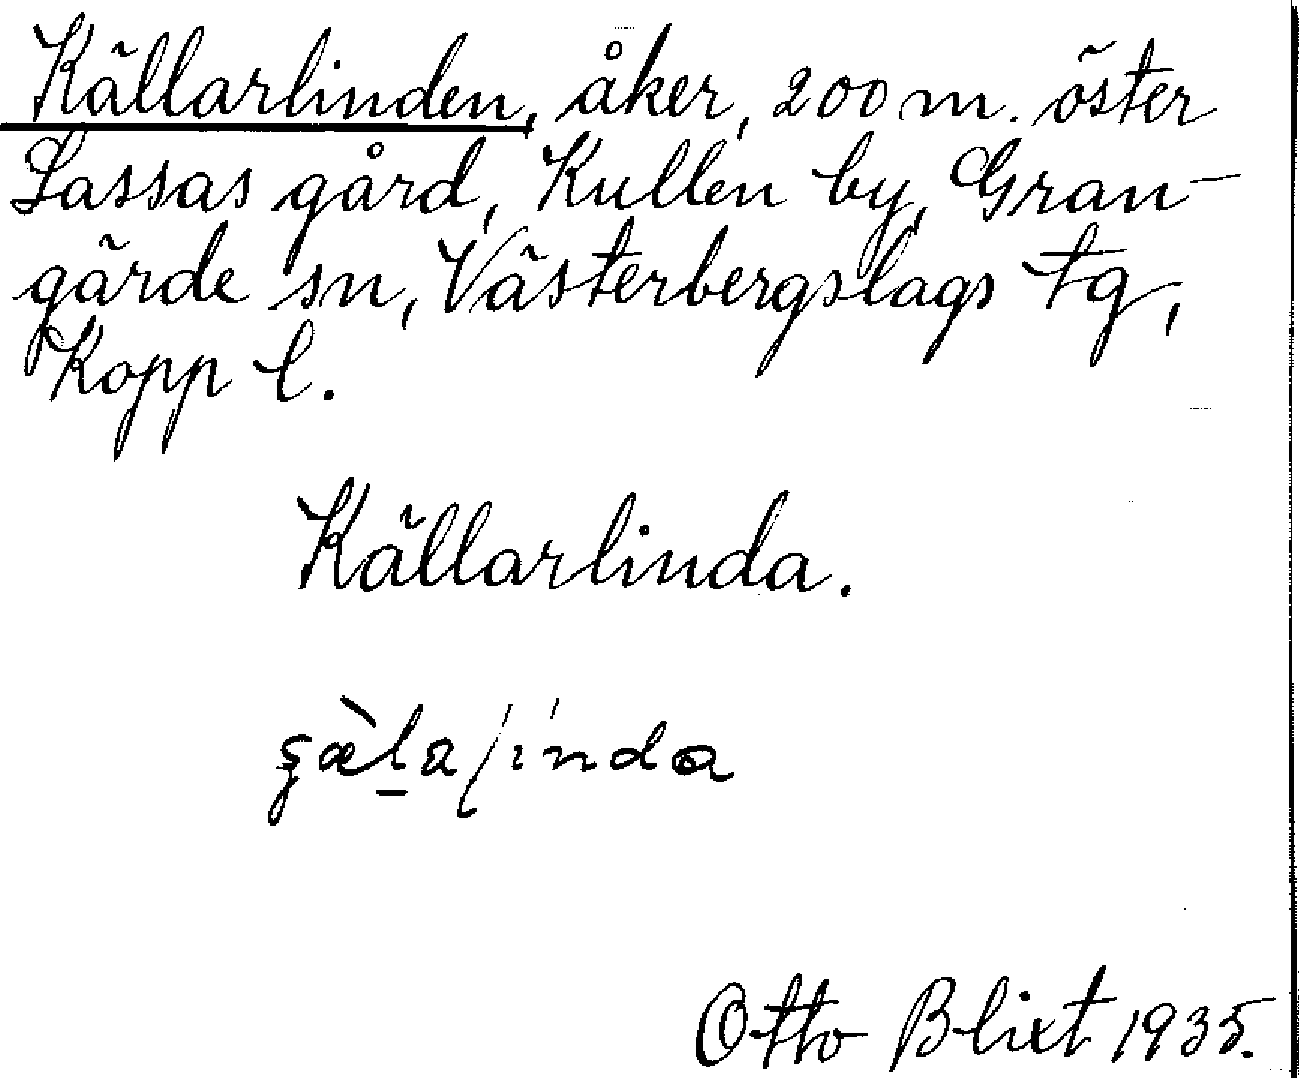 Källarlinden, åker, 200 m. öster
Lassas gård, Kullen by, Gran-
gärde sn, Västerbergslags tg,
Kopp l.
Källarlinda.
Otto Blixt 1935.